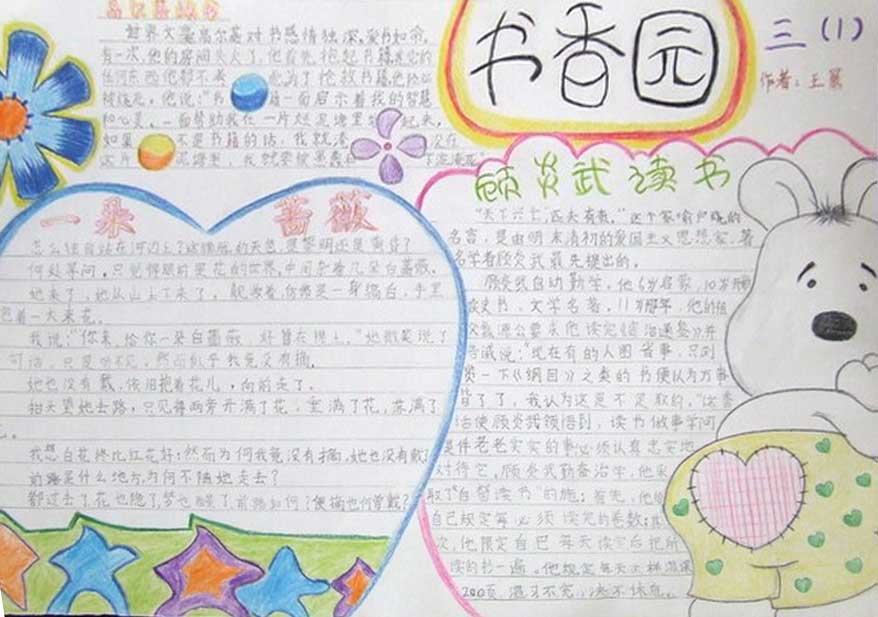 书香园
三(1)
作者：王
世界文豪高尔基对书感情独深,爱书如命,
有一次,他的房间失火了,他首先抱起书籍,其它的
任何东西他都不考 为了抢救书籍,他险些
被烧死,他说:"书 籍一面启示着我的智慧
和心灵、一面帮助我在一片烂泥塘里 起来,
如果 不是书籍的话,我就沉没在
这片 泥塘里,我就要被愚蠢
一朵 蔷薇
怎么独自站在河边上?这朦胧的天色,是黎明还是黄昏?
何处寻问,只觉得眼前是花的世界,中间杂着几朵白蔷薇。
她来了,她从山上下来了。靓妆着,仿佛是一身缟白,手里
抱着一大束花。
我说:"你来,给你一朵白蔷薇,好簪在襟上。"她微笑说了
句话,只是听不见,然而似乎我竟没有摘,
她也没有戴,依旧抱着花儿,向前走了。
抬头望她去路,只见得两旁开满了花,垂满了花,落满了
我想白花终比红花好;然而为何我竟没有摘,她也没有戴?
前路是什么地方,为何不随她走去?
都过去了,花也隐了,梦也醒了,前路如何?便摘也何曾戴?
顾炎武读书
"天下兴亡,匹夫有责。"这个家喻户晓的
名言,是由明末清初的爱国主义思想家、著
名学者顾炎武最先提出的。
顾炎武自幼勤学,他6岁启蒙,10岁开始
读史书、文学名著。11岁那年,他的祖
父 要求他读完《资治通鉴》并
告诫说:"现在有的人图省事,只浏
览一下《纲目》之类的书便认为万事
皆了了,我认为这是不足取的。"这番
话使顾炎武领悟到,读书做事学问
是件老老实实的事,必须认真忠实地
对待它。顾炎武勤奋治学,他采
取了"自督读书"的 施:首先,他给
自己规定每 必须读完的卷数;其
次,他限定自己每天读完后把所
读的抄一遍。他规定每天
200页,温习不完,决不休息。